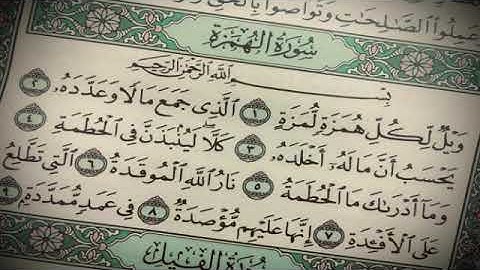 عَمِلُوا۟ ٱلصَّـٰلِحَـٰتِ وَتَوَاصَوْا۟ بِٱلْحَقِّ
سُورَةُ الهُمَزَةِ
بِسْمِ ٱللَّهِ ٱلرَّحْمَـٰنِ ٱلرَّحِيمِ
وَيْلٌ لِّكُلِّ هُمَزَةٍ لُّمَزَةٍ ١ ٱلَّذِى جَمَعَ مَالًا وَعَدَّدَهُۥ ٢
يَحْسَبُ أَنَّ مَالَهُۥٓ أَخْلَدَهُۥ ٣ كَلَّا لَيُنۢبَذَنَّ فِى ٱلْحُطَمَةِ ٤
وَمَآ أَدْرَىٰكَ مَا ٱلْحُطَمَةُ ٥ نَارُ ٱللَّهِ ٱلْمُوقَدَةُ ٦ ٱلَّتِى تَطَّلِعُ
عَلَى ٱلْأَفْـِٔدَةِ ٧ إِنَّهَا عَلَيْهِم مُّؤْصَدَةٌ ٨ فِى عَمَدٍ مُّمَدَّدَةٍۭ ٩
سُورَةُ الفِيلِ